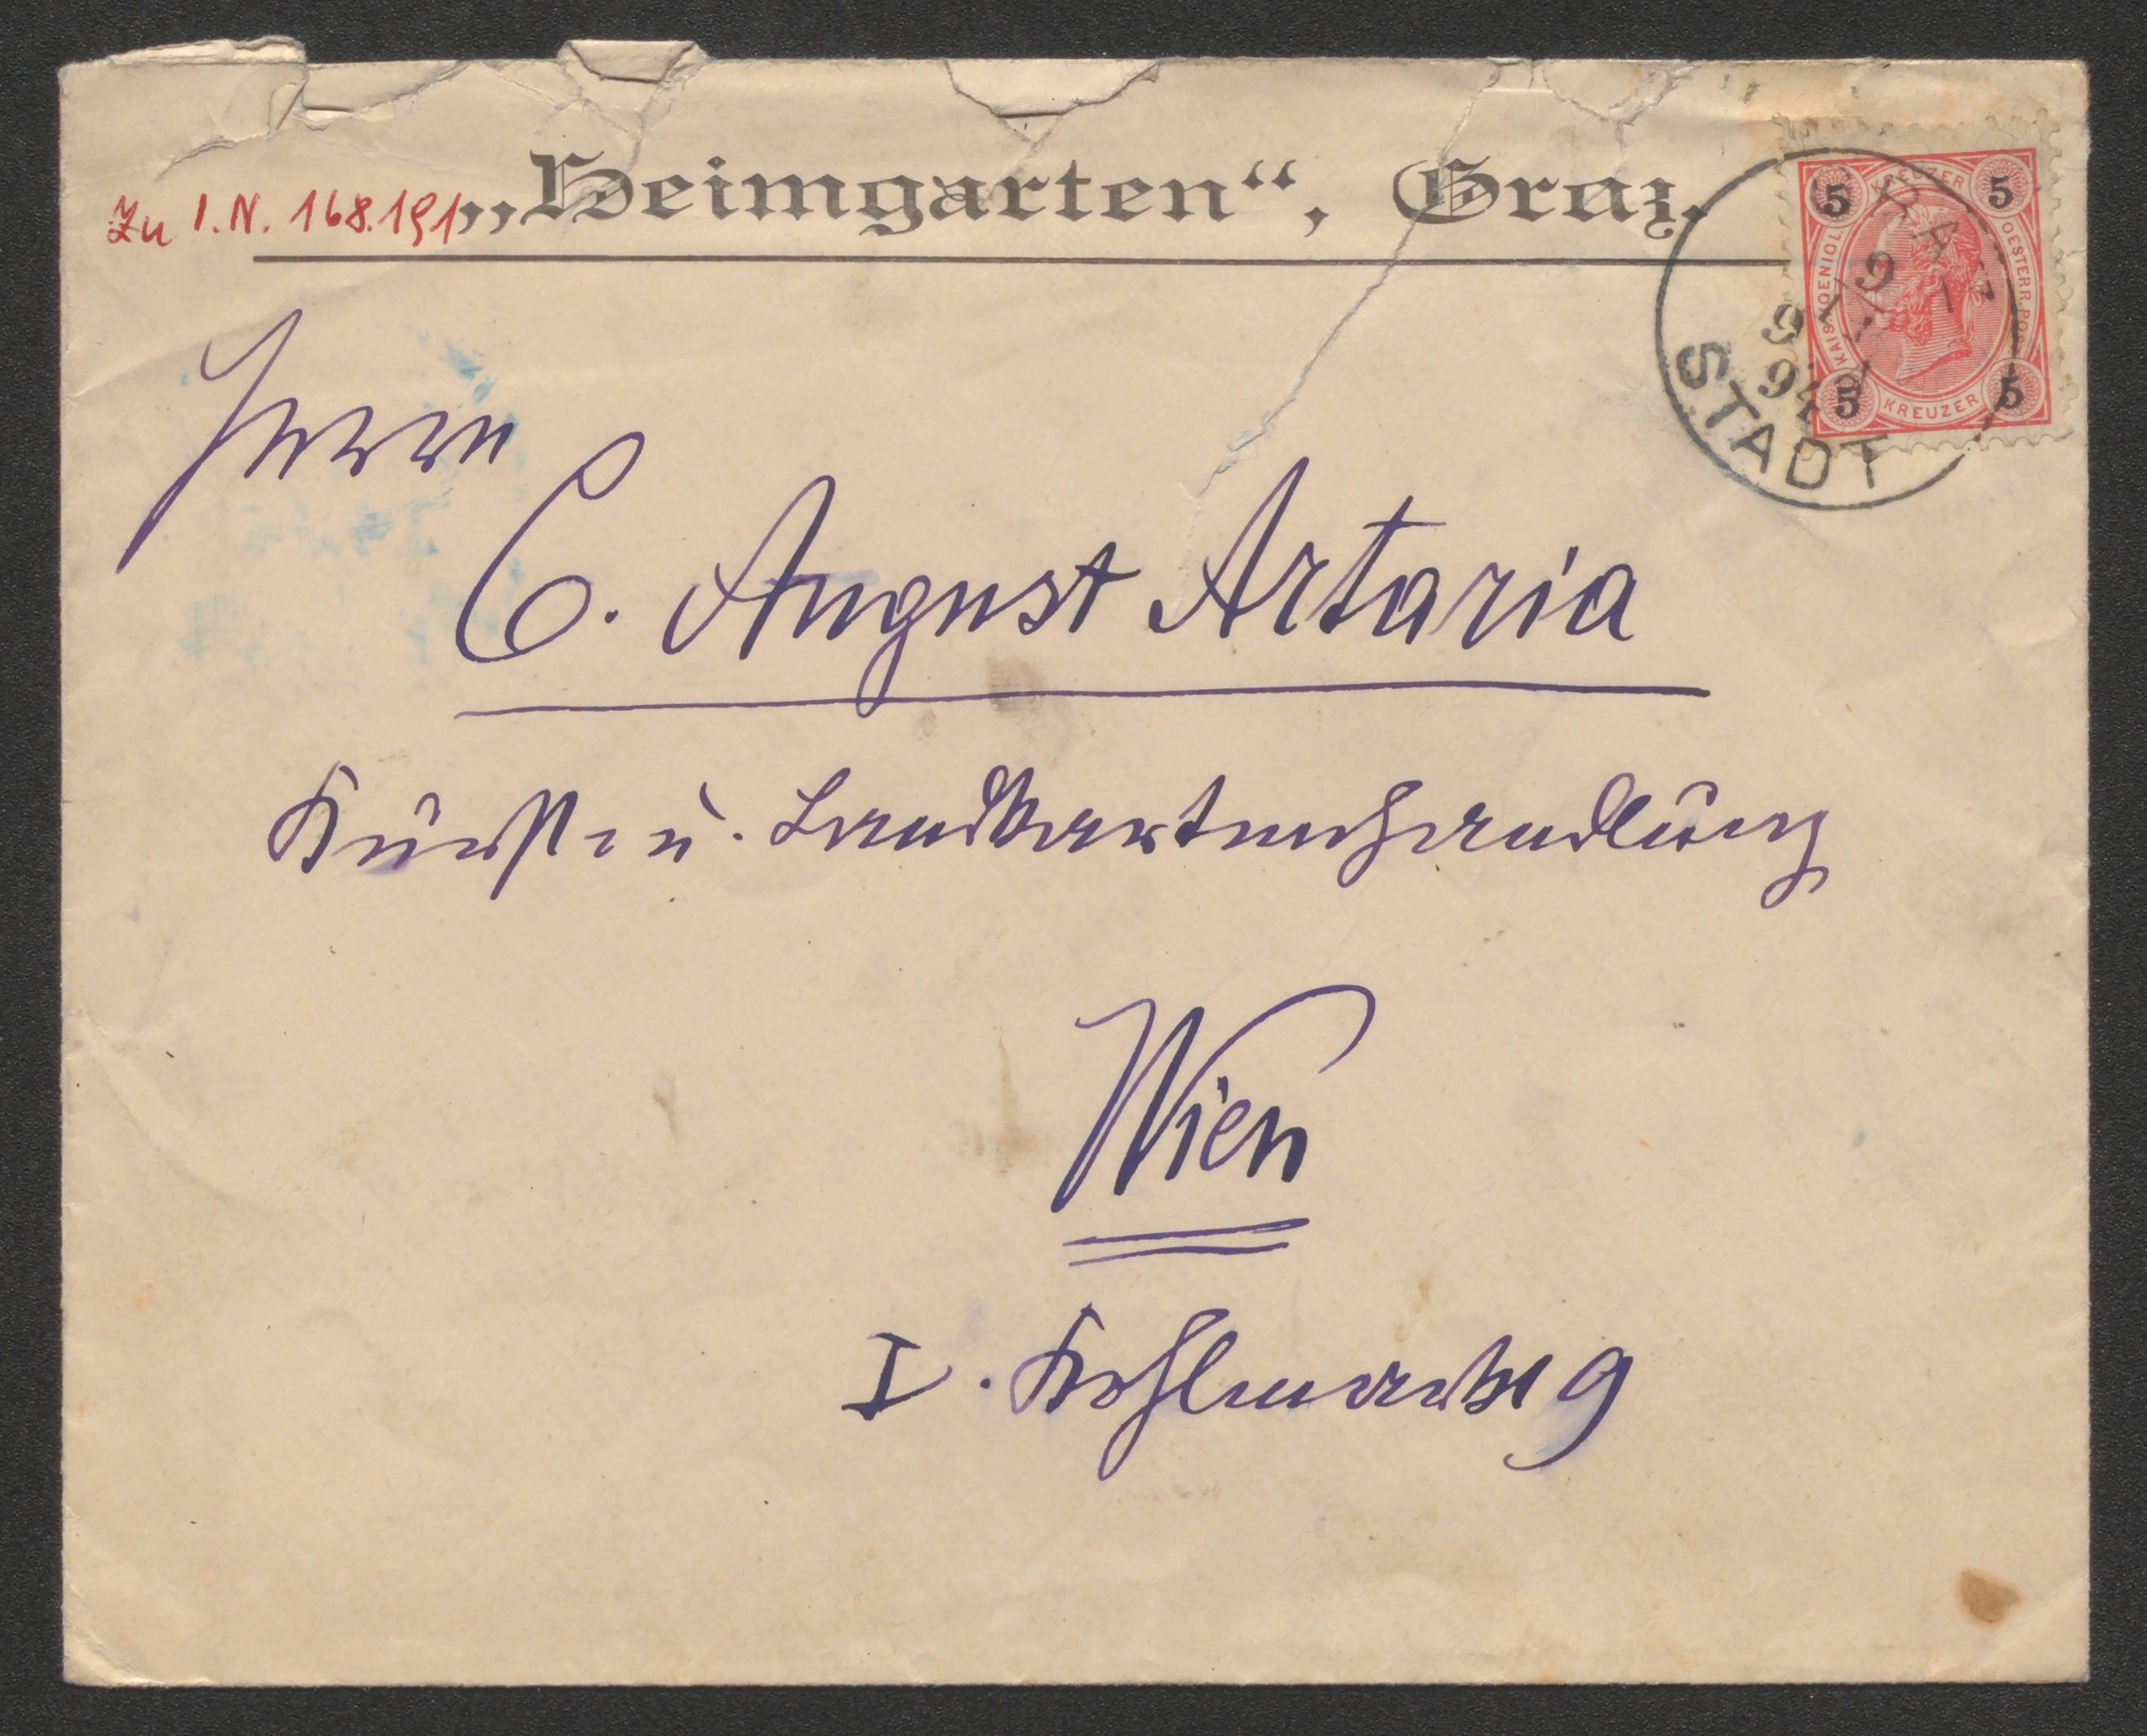 Zu I.N. 168.191
„Heimgarten“, Graz.
5 KREUZER 5
KAIS. KOENIGL. OESTERR. POST
5 KREUZER 5
GRAZ
STADT
Herrn
C. August Artaria
Kunst- u. Landkartenhandlung
Wien
I. Kohlmarkt 9